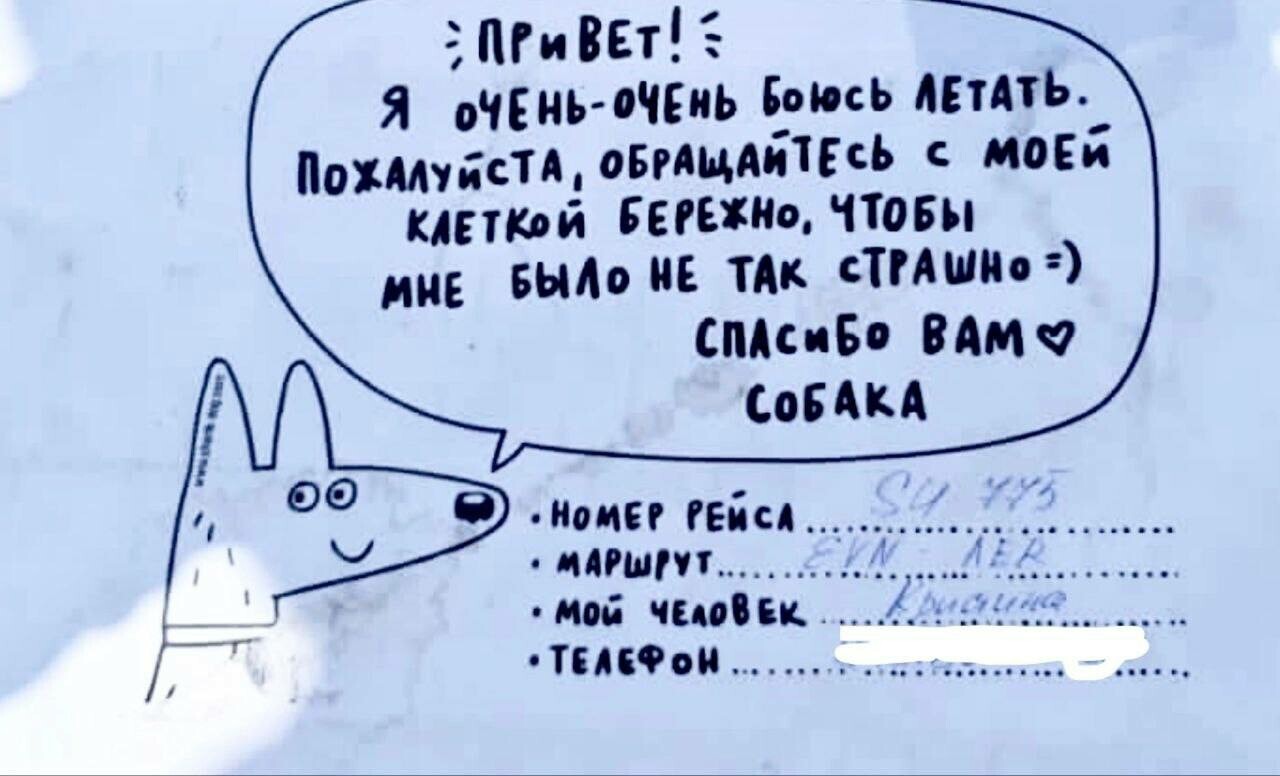 ПРИВЕТ!
Я ОЧЕНЬ-ОЧЕНЬ БОЮСЬ ЛЕТАТЬ.
ПОЖАЛУЙСТА, ОБРАЩАЙТЕСЬ С МОЕЙ
КЛЕТКОЙ БЕРЕЖНО, ЧТОБЫ
МНЕ БЫЛО НЕ ТАК СТРАШНО =)
СПАСИБО ВАМ ♡
СОБАКА
• НОМЕР РЕЙСА SU 775
• МАРШРУТ EVN - AER
• МОЙ ЧЕЛОВЕК Кристина
• ТЕЛЕФОН